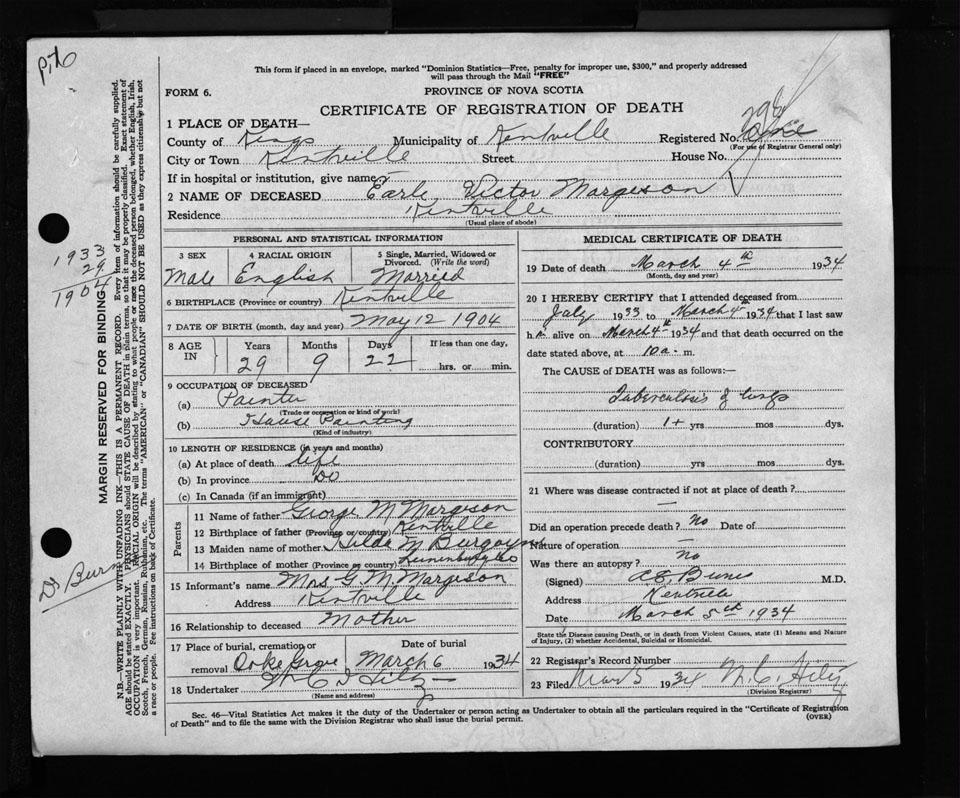 This form if placed in an envelope, marked "Dominion Statistics—Free, penalty for improper use, $300," and properly addressed
will pass through the Mail "FREE"
FORM 6.
PROVINCE OF NOVA SCOTIA
CERTIFICATE OF REGISTRATION OF DEATH
1 PLACE OF DEATH—
County of Kings Municipality of Kentville Registered No.
(For use of Registrar General only)
City or Town Kentville Street House No.
If in hospital or institution, give name —
2 NAME OF DECEASED Earle Victor Margeson
Residence Kentville
(Usual place of abode)
PERSONAL AND STATISTICAL INFORMATION
3 SEX 4 RACIAL ORIGIN 5 Single, Married, Widowed or
Divorced. (Write the word)
Male English Married
6 BIRTHPLACE (Province or country) Kentville
7 DATE OF BIRTH (month, day and year) May 12 1904
8 AGE IN Years Months Days If less than one day,
29 9 22 hrs. or min.
9 OCCUPATION OF DECEASED
(a) Painter
(Trade or occupation or kind of work)
(b) House Painting
(Kind of industry)
10 LENGTH OF RESIDENCE (in years and months)
(a) At place of death life
(b) In province Do
(c) In Canada (if an immigrant)
Parents
11 Name of father George M Margeson
12 Birthplace of father (Province or country) Kentville
13 Maiden name of mother Hilda M Burgoyne
14 Birthplace of mother (Province or country) Lunenburg Co
15 Informant's name Mrs G M Margeson
Address Kentville
16 Relationship to deceased Mother
17 Place of burial, cremation or Date of burial
removal Oake Grove March 6 1934
18 Undertaker
(Name and address)
MEDICAL CERTIFICATE OF DEATH
19 Date of death March 4th 1934
(Month, day and year)
20 I HEREBY CERTIFY that I attended deceased from
July 1933 to March 4th 1934 that I last saw
h m alive on March 4th 1934 and that death occurred on
date stated above, at 10 a. m.
The CAUSE of DEATH was as follows:—
Tuberculosis of lungs
(duration) 1+ yrs mos dys.
CONTRIBUTORY
(duration) yrs mos dys.
21 Where was disease contracted if not at place of death?
—
Did an operation precede death? No Date of
Nature of operation —
Was there an autopsy? No
(Signed) M.D.
Address Kentville
Date March 5th 1934
State the Disease causing Death, or in death from Violent Causes, state (1) Means and Nature
of Injury, (2) whether Accidental, Suicidal or Homicidal.
22 Registrar's Record Number
23 Filed Mar 5 1934
(Division Registrar)
Sec. 46—Vital Statistics Act makes it the duty of the Undertaker or person acting as Undertaker to obtain all the particulars required in the "Certificate of Registration
of Death" and to file the same with the Division Registrar who shall issue the burial permit. (OVER)
MARGIN RESERVED FOR BINDING
N.B.—WRITE PLAINLY WITH UNFADING INK—THIS IS A PERMANENT RECORD. Every item of information should be carefully supplied.
AGE should be stated EXACTLY. PHYSICIANS should STATE CAUSE OF DEATH in plain terms, so that it may be properly classified. Exact statement of
OCCUPATION is very important. RACIAL ORIGIN will be described by stating to what people or race the deceased person belonged, whether English, Irish,
Scotch, French, German, Russian, Ruthenian, etc. The terms "AMERICAN" or "CANADIAN" SHOULD NOT BE USED as they express citizenship but not
a race or people. See instructions on back of Certificate.
1933
29
1904